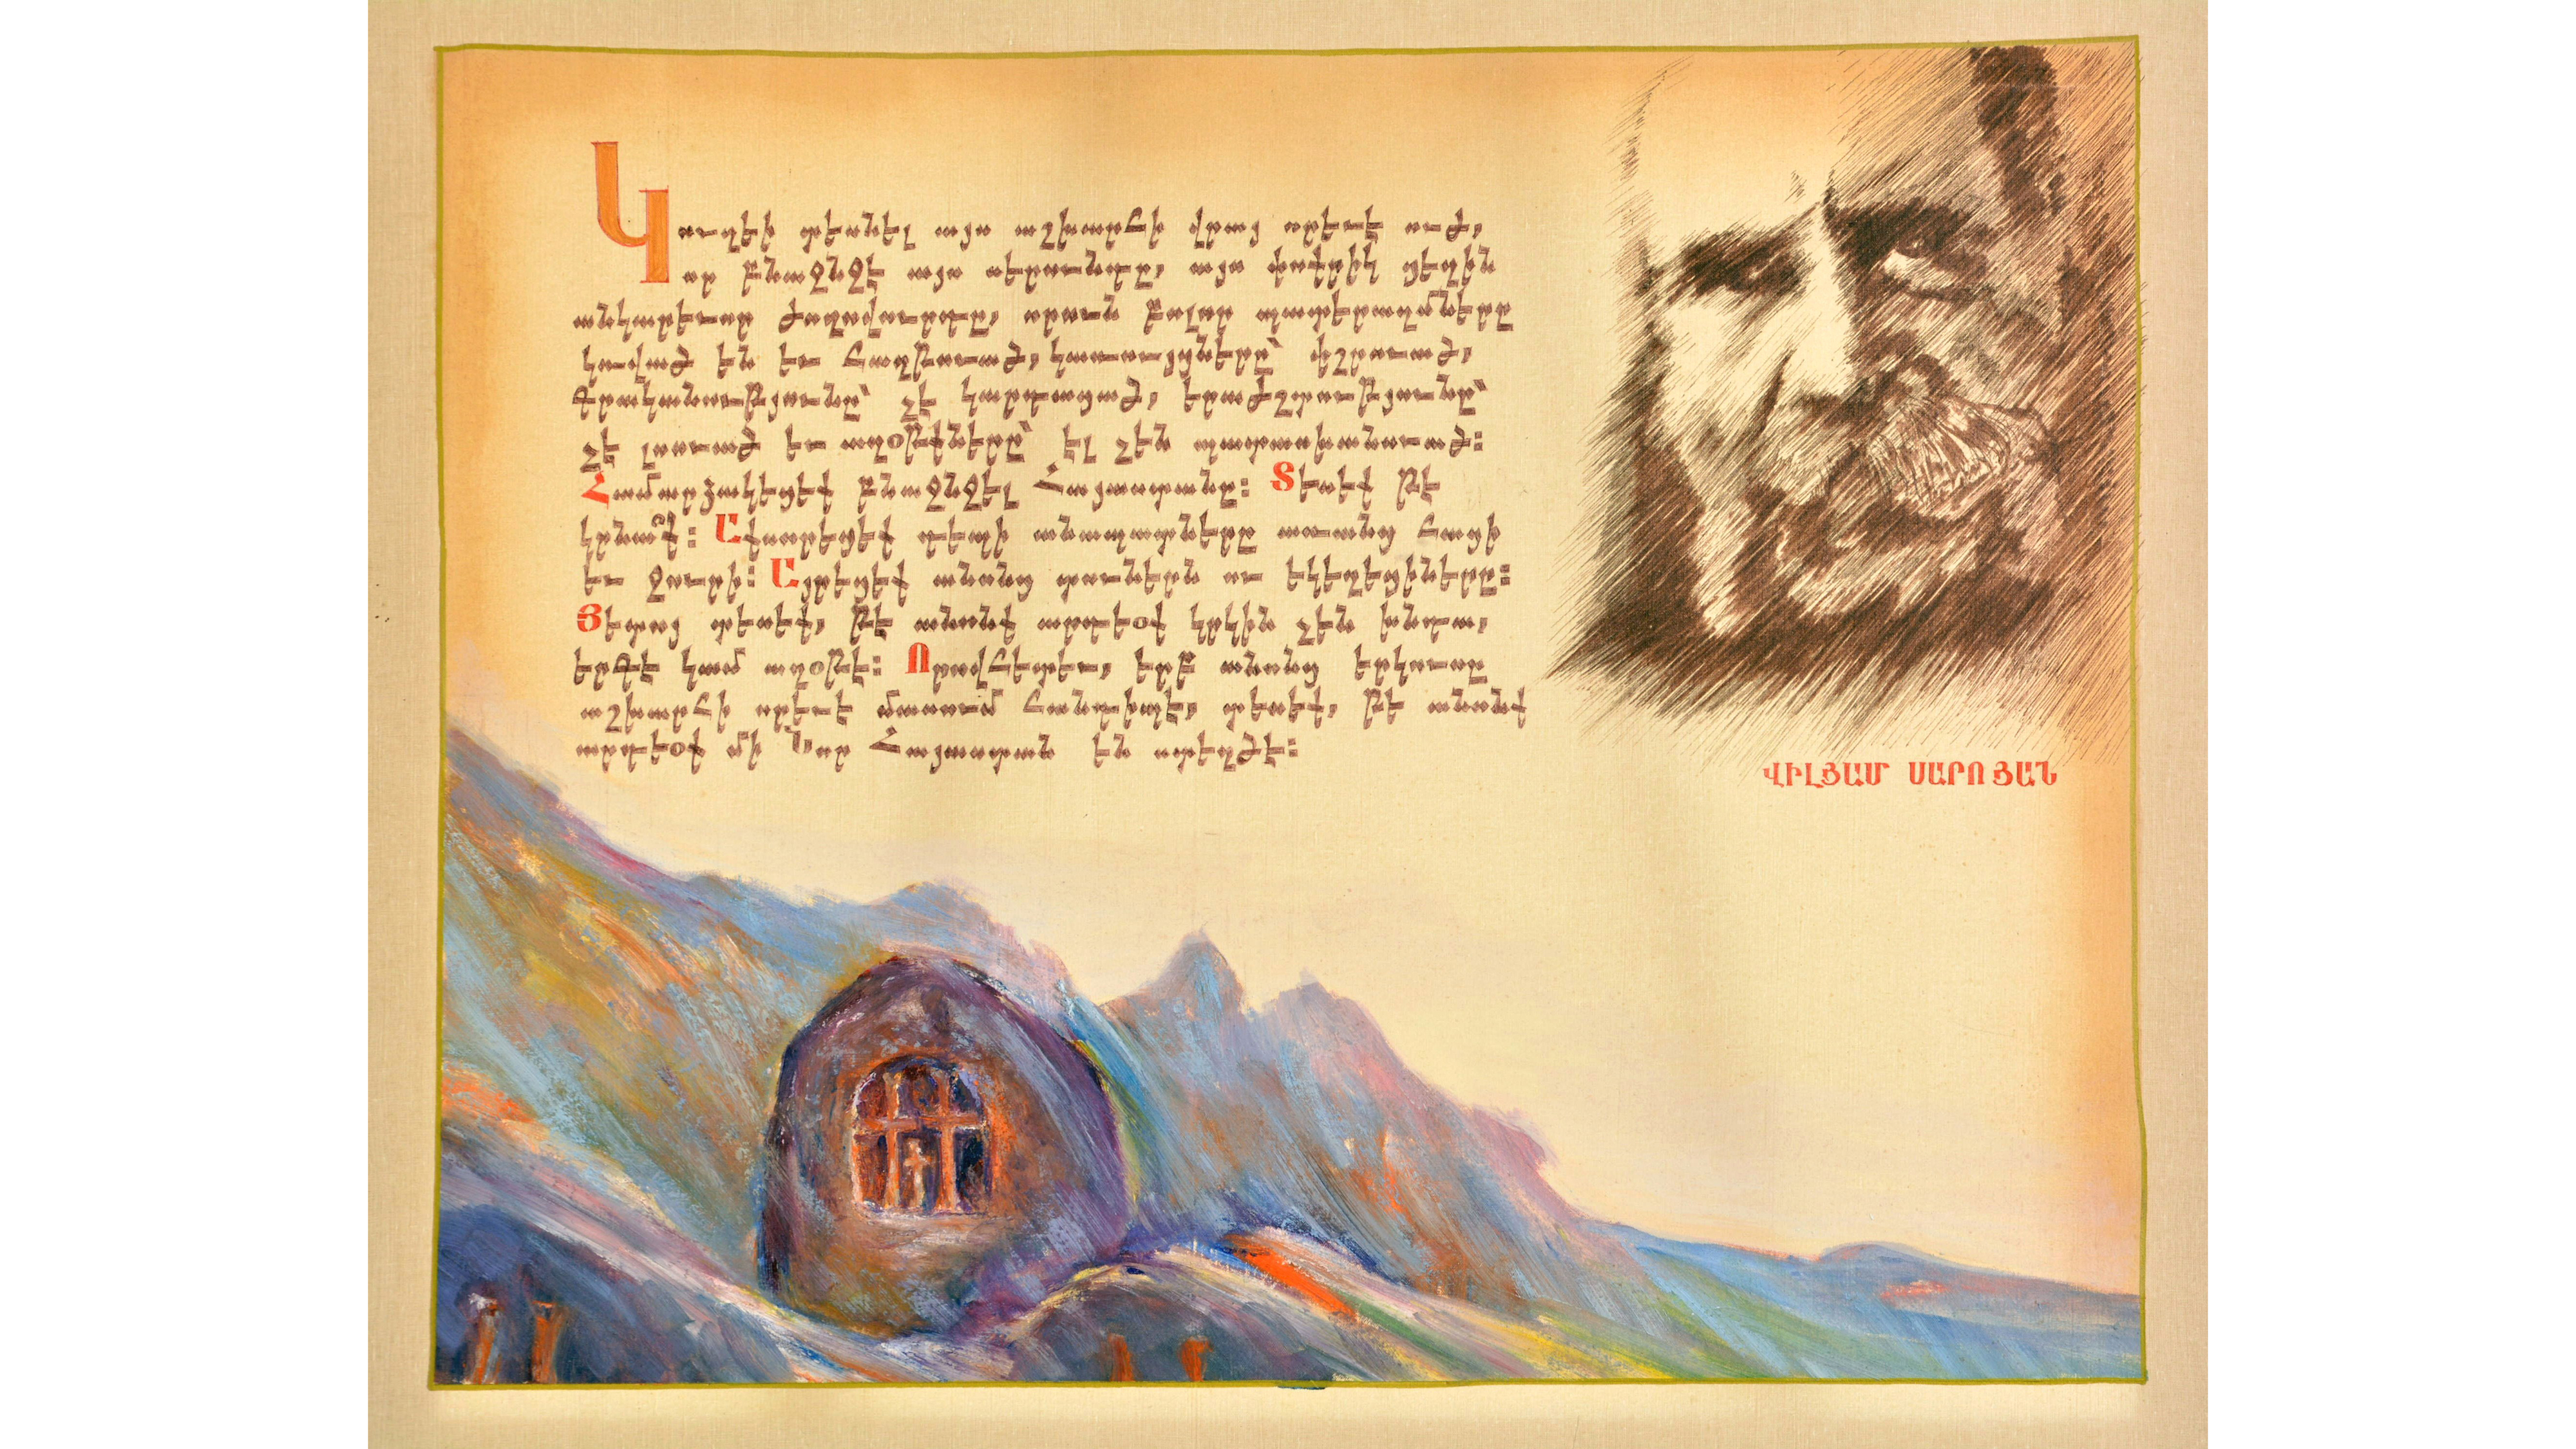 Կուզեի տեսնել այս աշխարհի վրայ որեւէ ուժ,
որ բնաջնջէ այս սերունդը, այս փոքրիկ ցեղին
անկարեւոր ժողովուրդը, որուն բոլոր պատերազմները
կռված են եւ հաղթուած, կառույցները՝ փշրուած,
գրականութիւնը՝ չէ կարդացած, երաժշտութիւնը՝
չէ լսուած եւ աղօթքները՝ էլ չեն պատասխանուած։
Համարձակեցէք բնաջնջել Հայաստանը։ Տեսէք թէ
կրնա՞ք։ Աքսորեցէք դեպի անապատները առանց հացի
եւ ջուրի։ Այրեցէք անոնց տուներն ու եկեղեցիները։
Յետոյ տեսէք, թէ անոնք արդեօք կրկին չեն խնդա,
երգէ կամ աղօթէ։ Որովհետեւ, երբ անոնց երկուսը
աշխարհի որեւէ մասում հանդիպէ, տեսէք, թէ անոնք
արդեօք մի Նոր Հայաստան են ստեղծէ։
ՎԻԼՅԱՄ ՍԱՐՈՅԱՆ